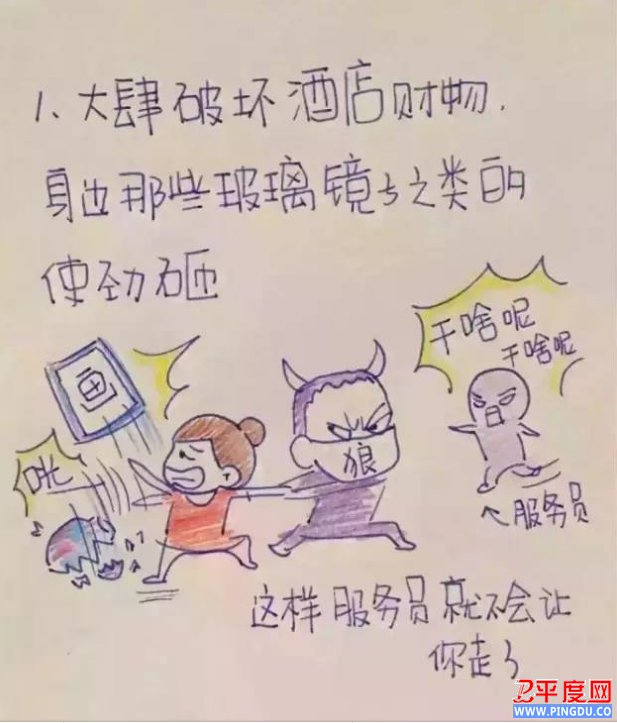 1、大肆破坏酒店财物,
身边那些玻璃镜子之类的
使劲砸
干啥呢
干啥呢
画
咣
狼
服务员
这样服务员就不会让
你走了
平度网
WWW.PINGDU.CO